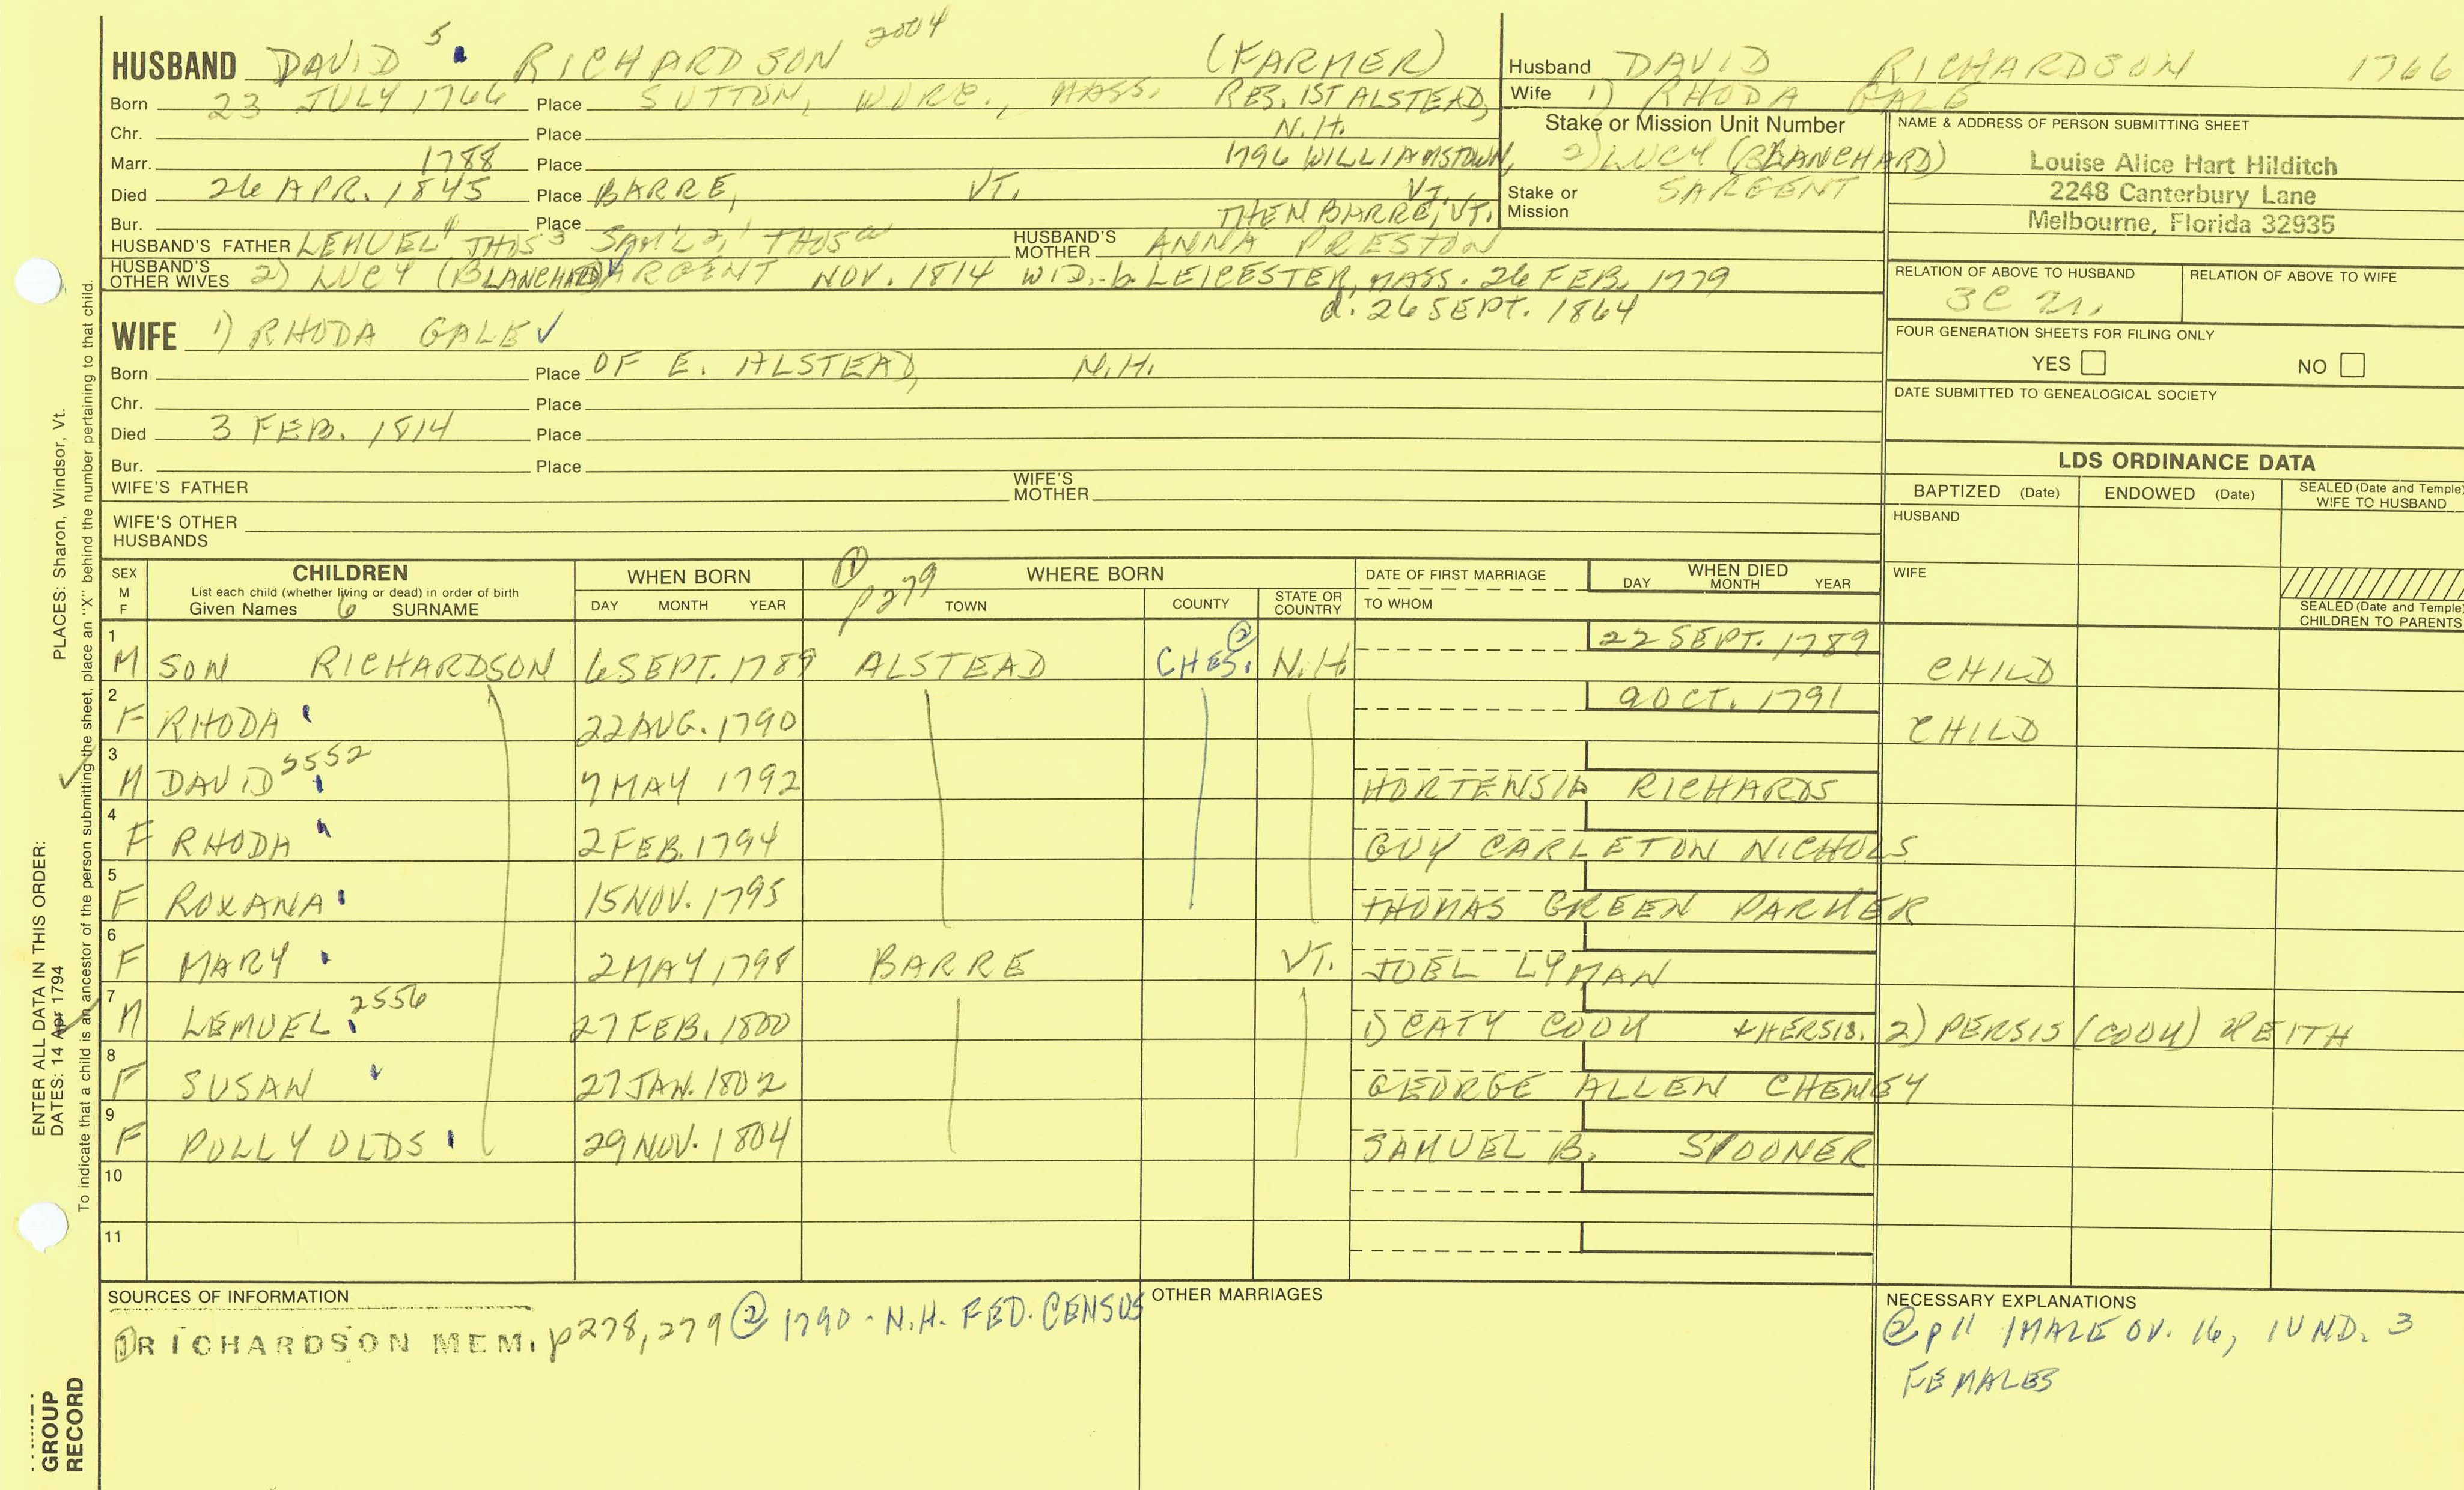 HUSBAND DAVID 5 RICHARDSON 2004 (FARMER)
Born 23 JULY 1766 Place SUTTON, WORC., MASS. RES. 1ST ALSTEAD,
Chr. Place N.H.
Marr. 1788 Place 1796 WILLIAMSTOWN,
Died 26 APR. 1845 Place BARRE, VT. VT.,
Bur. Place THEN BARRE, VT.
HUSBAND'S FATHER LEMUEL4 THOS3 SAM'L2, THOS HUSBAND'S MOTHER ANNA PRESTON
HUSBAND'S OTHER WIVES 2) LUCY (BLANCHARD) SARGENT NOV. 1814 WID.-b. LEICESTER, MASS. 26 FEB. 1779
d. 26 SEPT. 1864
WIFE 1) RHODA GALE ✓
Born Place OF E. ALSTEAD, N.H.
Chr. Place
Died 3 FEB. 1814 Place
Bur. Place
WIFE'S FATHER WIFE'S MOTHER
WIFE'S OTHER HUSBANDS
Husband DAVID RICHARDSON 1766
Wife 1) RHODA GALE
Stake or Mission Unit Number
2) LUCY (BLANCHARD)
Stake or Mission SARGENT
NAME & ADDRESS OF PERSON SUBMITTING SHEET
Louise Alice Hart Hilditch
2248 Canterbury Lane
Melbourne, Florida 32935
RELATION OF ABOVE TO HUSBAND RELATION OF ABOVE TO WIFE
3C
FOUR GENERATION SHEETS FOR FILING ONLY
YES NO
DATE SUBMITTED TO GENEALOGICAL SOCIETY
LDS ORDINANCE DATA
BAPTIZED (Date) ENDOWED (Date) SEALED (Date and Temple) WIFE TO HUSBAND
HUSBAND
WIFE
SEALED (Date and Temple) CHILDREN TO PARENTS
SEX M F CHILDREN WHEN BORN ① p279 WHERE BORN DATE OF FIRST MARRIAGE WHEN DIED
List each child (whether living or dead) in order of birth DAY MONTH YEAR
Given Names 6 SURNAME DAY MONTH YEAR TOWN COUNTY STATE OR COUNTRY TO WHOM
1 M SON RICHARDSON 6 SEPT. 1789 ALSTEAD CHES. ② N.H. 22 SEPT. 1789 CHILD
2 F RHODA 22 AUG. 1790 9 OCT. 1791 CHILD
3 M DAVID 2552 7 MAY 1792 HORTENSIA RICHARDS
4 F RHODA 2 FEB. 1794 GUY CARLETON NICHOLS
5 F ROXANA 15 NOV. 1795 THOMAS GREEN PARKER
6 F MARY 2 MAY 1798 BARRE VT. JOEL LYMAN
7 M LEMUEL 2556 27 FEB. 1800 1) CATY COOK + HERSIS. 2) PERSIS (COOK) KEITH
8 F SUSAN 27 JAN. 1802 GEORGE ALLEN CHENEY
9 F POLLY OLDS 29 NOV. 1804 SAMUEL B. SPOONER
10
11
SOURCES OF INFORMATION
① RICHARDSON MEM. p278, 279 ② 1790 - N.H. FED. CENSUS
OTHER MARRIAGES
NECESSARY EXPLANATIONS
② p11 1 MALE OV. 16, 1 UND. 3
FEMALES
ENTER ALL DATA IN THIS ORDER:
DATES: 14 Apr 1794 PLACES: Sharon, Windsor, Vt.
To indicate that a child is an ancestor of the person submitting the sheet, place an "X" behind the number pertaining to that child.
GROUP
RECORD